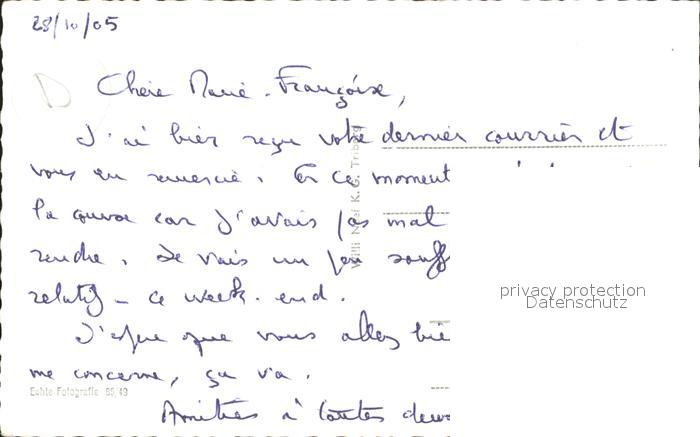 28/10/05
Chère Marie-Françoise,
J'ai bien reçu votre dernier courrier et
vous en remercie. En ce moment
car j'avais pas mal
rendre. Je vais un peu souff
relatif - ce week-end.
J'espère que vous allez bie
me concerne, ça va.
Amitiés à toutes deux
Willi Noel K.G. Tri
Echte Fotografie 65/49
privacy protection
Datenschutz